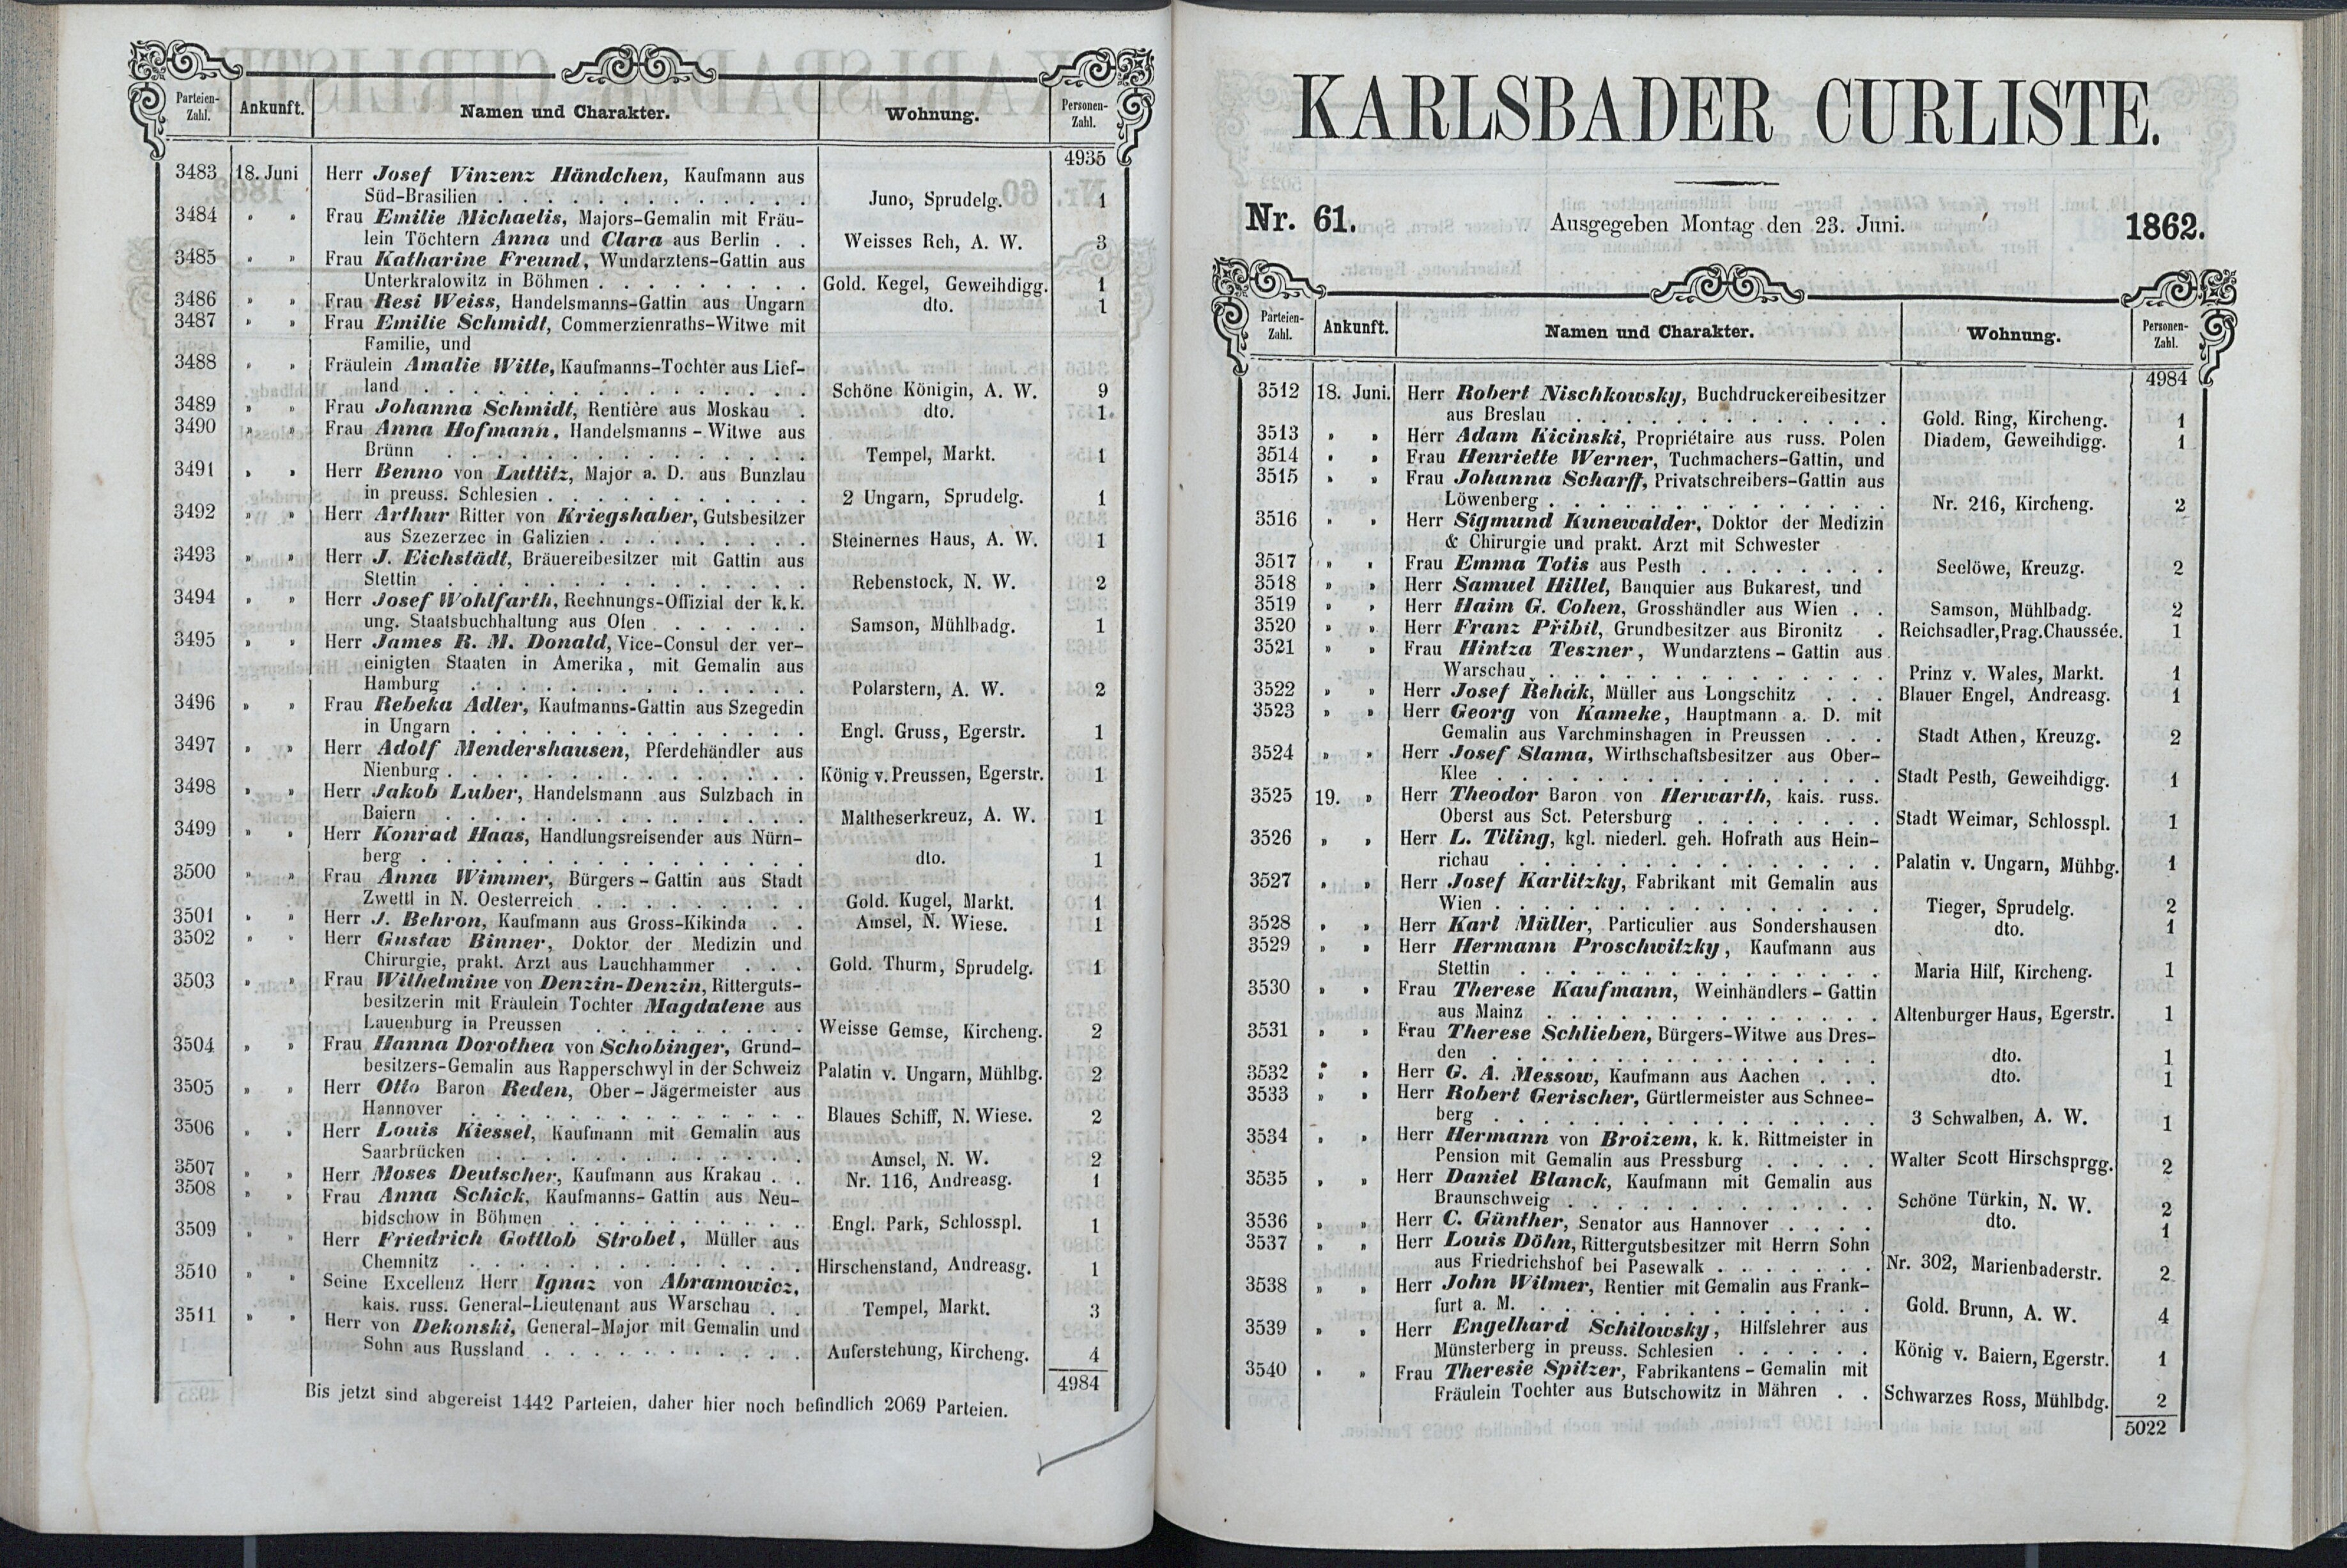 Parteien-Zahl. Ankunft. Namen und Charakter. Wohnung. Personen-Zahl.
4935
3483 18. Juni Herr Josef Vinzenz Händchen, Kaufmann aus
Süd-Brasilien . . . Juno, Sprudelg. 1
3484 " " Frau Emilie Michaelis, Majors-Gemalin mit Fräu-
lein Töchtern Anna und Clara aus Berlin . . Weisses Reh, A. W. 3
3485 " " Frau Katharine Freund, Wundarztens-Gattin aus
Unterkralowitz in Böhmen . . . Gold. Kegel, Geweihdigg. 1
3486 " " Frau Resi Weiss, Handelsmanns-Gattin aus Ungarn dto. 1
3487 " " Frau Emilie Schmidt, Commerzienraths-Witwe mit
Familie, und
3488 " " Fräulein Amalie Witte, Kaufmanns-Tochter aus Lief-
land . . . Schöne Königin, A. W. 9
3489 " " Frau Johanna Schmidt, Rentière aus Moskau . dto. 1
3490 " " Frau Anna Hofmann, Handelsmanns-Witwe aus
Brünn . . . Tempel, Markt. 1
3491 " " Herr Benno von Luttitz, Major a. D. aus Bunzlau
in preuss. Schlesien . . . 2 Ungarn, Sprudelg. 1
3492 " " Herr Arthur Ritter von Kriegshaber, Gutsbesitzer
aus Szezerzec in Galizien . . . Steinernes Haus, A. W. 1
3493 " " Herr J. Eichstädt, Bräuereibesitzer mit Gattin aus
Stettin . . . Rebenstock, N. W. 2
3494 " " Herr Josef Wohlfarth, Rechnungs-Offizial der k. k.
ung. Staatsbuchhaltung aus Ofen . . . Samson, Mühlbadg. 1
3495 " " Herr James R. M. Donald, Vice-Consul der ver-
einigten Staaten in Amerika, mit Gemalin aus
Hamburg . . . Polarstern, A. W. 2
3496 " " Frau Rebeka Adler, Kaufmanns-Gattin aus Szegedin
in Ungarn . . . Engl. Gruss, Egerstr. 1
3497 " " Herr Adolf Mendershausen, Pferdehändler aus
Nienburg . . . König v. Preussen, Egerstr. 1
3498 " " Herr Jakob Luber, Handelsmann aus Sulzbach in
Baiern . . . Maltheserkreuz, A. W. 1
3499 " " Herr Konrad Haas, Handlungsreisender aus Nürn-
berg . . . dto. 1
3500 " " Frau Anna Wimmer, Bürgers-Gattin aus Stadt
Zwettl in N. Oesterreich . . . Gold. Kugel, Markt. 1
3501 " " Herr J. Behron, Kaufmann aus Gross-Kikinda . . Amsel, N. Wiese. 1
3502 " " Herr Gustav Binner, Doktor der Medizin und
Chirurgie, prakt. Arzt aus Lauchhammer . . . Gold. Thurm, Sprudelg. 1
3503 " " Frau Wilhelmine von Denzin-Denzin, Ritterguts-
besitzerin mit Fräulein Tochter Magdalene aus
Lauenburg in Preussen . . . Weisse Gemse, Kircheng. 2
3504 " " Frau Hanna Dorothea von Schobinger, Grund-
besitzers-Gemalin aus Rapperschwyl in der Schweiz Palatin v. Ungarn, Mühlbg. 2
3505 " " Herr Otto Baron Reden, Ober-Jägermeister aus
Hannover . . . Blaues Schiff, N. Wiese. 2
3506 " " Herr Louis Kiessel, Kaufmann mit Gemalin aus
Saarbrücken . . . Amsel, N. W. 2
3507 " " Herr Moses Deutscher, Kaufmann aus Krakau . . Nr. 116, Andreasg. 1
3508 " " Frau Anna Schick, Kaufmanns-Gattin aus Neu-
bidschow in Böhmen . . . Engl. Park, Schlosspl. 1
3509 " " Herr Friedrich Gottlob Strobel, Müller aus
Chemnitz . . . Hirschenstand, Andreasg. 1
3510 " " Seine Excellenz Herr Ignaz von Abramowicz,
kais. russ. General-Lieutenant aus Warschau . . Tempel, Markt. 3
3511 " " Herr von Dekonski, General-Major mit Gemalin und
Sohn aus Russland . . . Auferstehung, Kircheng. 4
4984
Bis jetzt sind abgereist 1442 Parteien, daher hier noch befindlich 2069 Parteien.
KARLSBADER CURLISTE.
Nr. 61. Ausgegeben Montag den 23. Juni. 1862.
Parteien-Zahl. Ankunft. Namen und Charakter. Wohnung. Personen-Zahl.
4984
3512 18. Juni. Herr Robert Nischkowsky, Buchdruckereibesitzer
aus Breslau . . . Gold. Ring, Kircheng. 1
3513 " " Herr Adam Kicinski, Propriétaire aus russ. Polen Diadem, Geweihdigg. 1
3514 " " Frau Henriette Werner, Tuchmachers-Gattin, und
3515 " " Frau Johanna Scharff, Privatschreibers-Gattin aus
Löwenberg . . . Nr. 216, Kircheng. 2
3516 " " Herr Sigmund Kunewalder, Doktor der Medizin
& Chirurgie und prakt. Arzt mit Schwester
3517 " " Frau Emma Totis aus Pesth . . . Seelöwe, Kreuzg. 2
3518 " " Herr Samuel Hillel, Banquier aus Bukarest, und
3519 " " Herr Haim G. Cohen, Grosshändler aus Wien . . Samson, Mühlbadg. 2
3520 " " Herr Franz Přibil, Grundbesitzer aus Bironitz . Reichsadler, Prag. Chaussée. 1
3521 " " Frau Hintza Teszner, Wundarztens-Gattin aus
Warschau . . . Prinz v. Wales, Markt. 1
3522 " " Herr Josef Řehák, Müller aus Longschitz . . . Blauer Engel, Andreasg. 1
3523 " " Herr Georg von Kameke, Hauptmann a. D. mit
Gemalin aus Varchminshagen in Preussen . . . Stadt Athen, Kreuzg. 2
3524 " " Herr Josef Slama, Wirthschaftsbesitzer aus Ober-
Klee . . . Stadt Pesth, Geweihdigg. 1
3525 19. " Herr Theodor Baron von Herwarth, kais. russ.
Oberst aus Sct. Petersburg . . . Stadt Weimar, Schlosspl. 1
3526 " " Herr L. Tiling, kgl. niederl. geh. Hofrath aus Hein-
richau . . . Palatin v. Ungarn, Mühbg. 1
3527 " " Herr Josef Karlitzky, Fabrikant mit Gemalin aus
Wien . . . Tieger, Sprudelg. 2
3528 " " Herr Karl Müller, Particulier aus Sondershausen dto. 1
3529 " " Herr Hermann Proschwitzky, Kaufmann aus
Stettin . . . Maria Hilf, Kircheng. 1
3530 " " Frau Therese Kaufmann, Weinhändlers-Gattin
aus Mainz . . . Altenburger Haus, Egerstr. 1
3531 " " Frau Therese Schlieben, Bürgers-Witwe aus Dres-
den . . . dto. 1
3532 " " Herr G. A. Messow, Kaufmann aus Aachen . . . dto. 1
3533 " " Herr Robert Gerischer, Gürtlermeister aus Schnee-
berg . . . 3 Schwalben, A. W. 1
3534 " " Herr Hermann von Broizem, k. k. Rittmeister in
Pension mit Gemalin aus Pressburg . . . Walter Scott Hirschsprgg. 2
3535 " " Herr Daniel Blanck, Kaufmann mit Gemalin aus
Braunschweig . . . Schöne Türkin, N. W. 2
3536 " " Herr C. Günther, Senator aus Hannover . . . . dto. 1
3537 " " Herr Louis Döhn, Rittergutsbesitzer mit Herrn Sohn
aus Friedrichshof bei Pasewalk . . . Nr. 302, Marienbaderstr. 2
3538 " " Herr John Wilmer, Rentier mit Gemalin aus Frank-
furt a. M. . . . Gold. Brunn, A. W. 4
3539 " " Herr Engelhard Schilowsky, Hilfslehrer aus
Münsterberg in preuss. Schlesien . . . König v. Baiern, Egerstr. 1
3540 " " Frau Theresie Spitzer, Fabrikantens-Gemalin mit
Fräulein Tochter aus Butschowitz in Mähren . . Schwarzes Ross, Mühlbdg. 2
5022